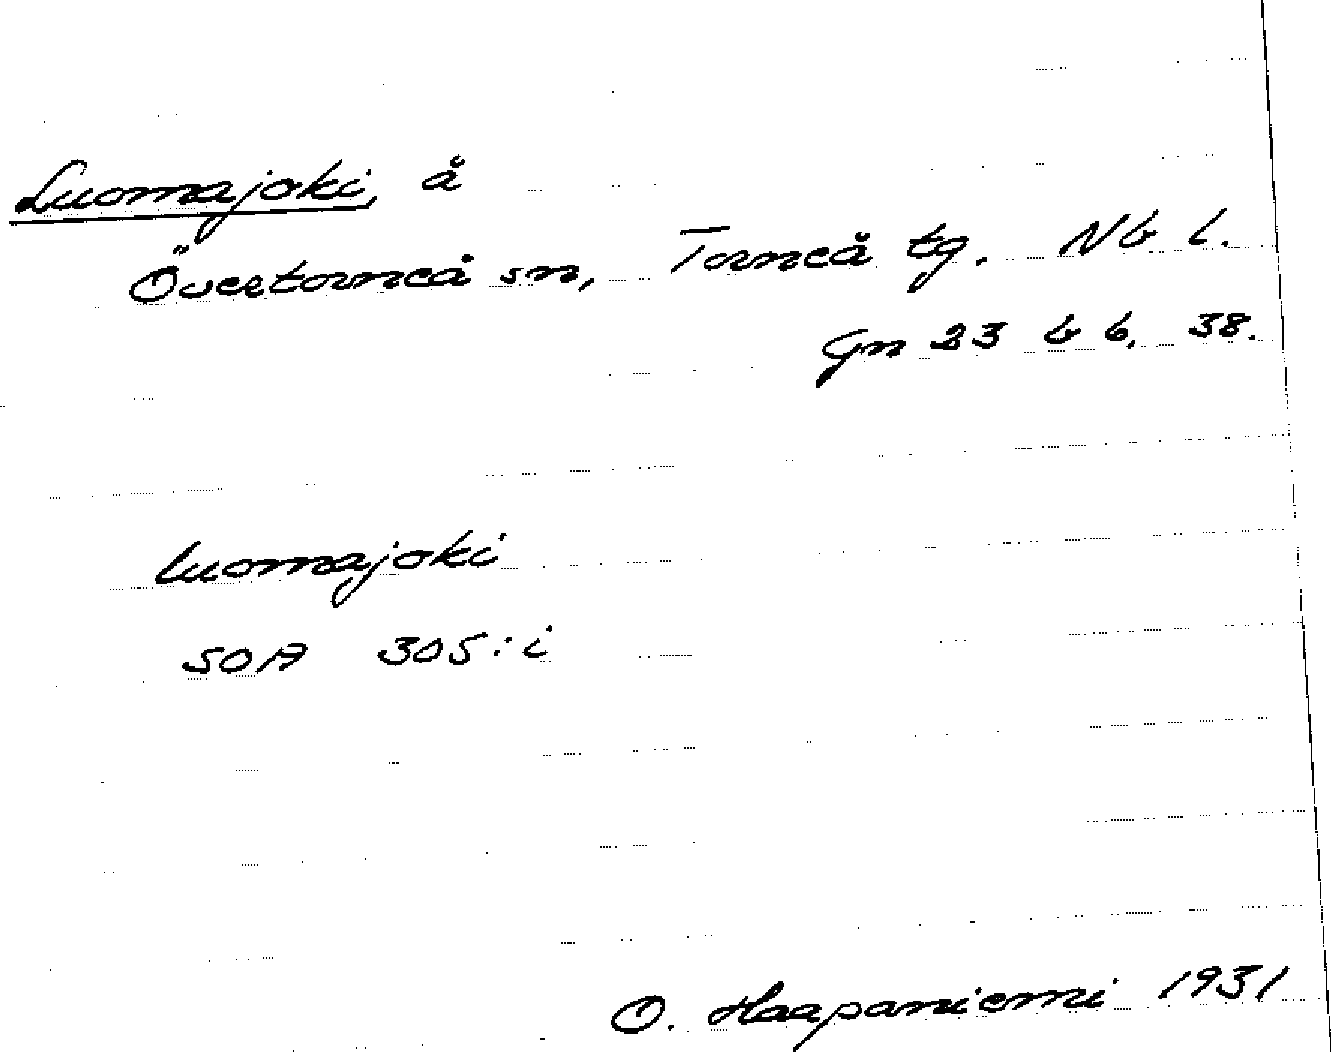 Luomajoki, å
Övertorneå sn, Torneå tg. Nb l.
Gn 23 b 6. 38.
luomajoki
SOA 305:i
O. Haapaniemi 1931